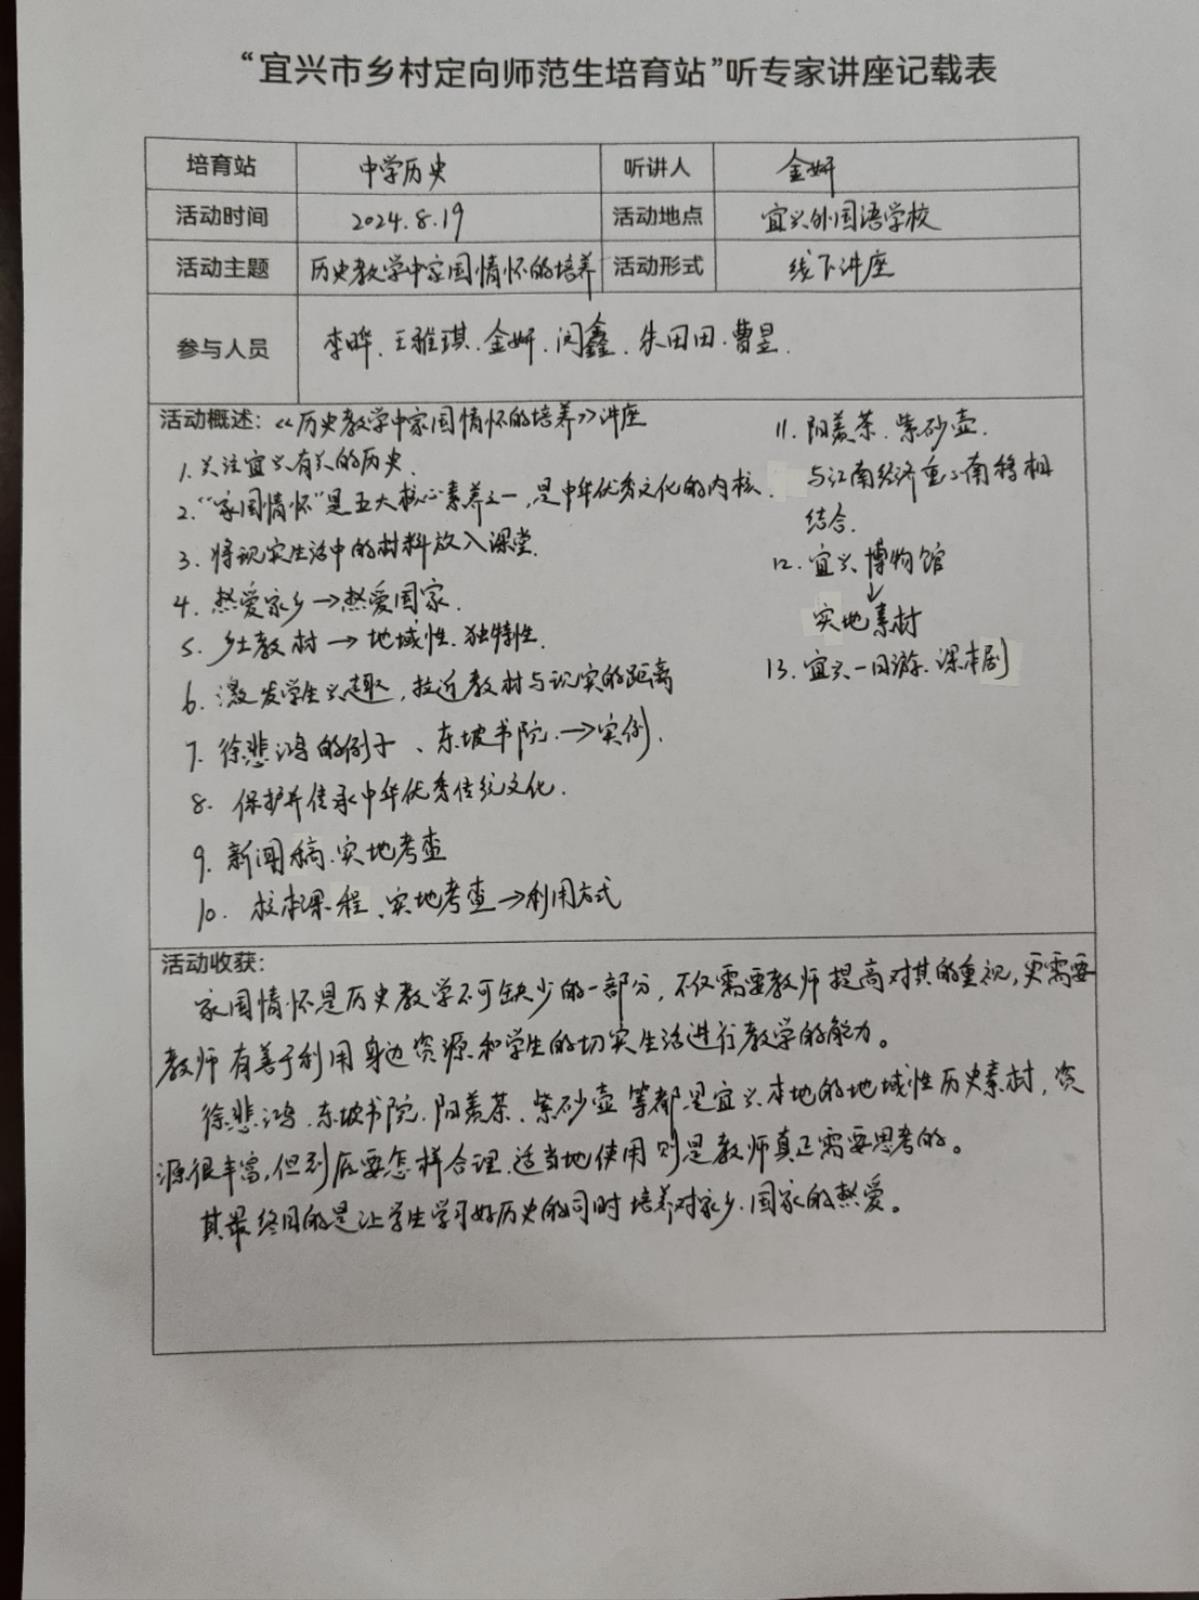 “宜兴市乡村定向师范生培育站”听专家讲座记载表
培育站 中学历史 听讲人 金妍
活动时间 2024.8.19 活动地点 宜兴外国语学校
活动主题 历史教学中家国情怀的培养 活动形式 线下讲座
参与人员 李晔、王雅琪、金妍、闵鑫、朱田田、曹昱.
活动概述：《历史教学中家国情怀的培养》讲座
1. 关注宜兴有关的历史.
2. “家国情怀”是五大核心素养之一,是中华优秀文化的内核.
3. 将现实生活中的材料放入课堂.
4. 热爱家乡→热爱国家.
5. 乡土教材→地域性.独特性.
6. 激发学生兴趣,拉近教材与现实的距离
7. 徐悲鸿的例子、东坡书院.→实例.
8. 保护并传承中华优秀传统文化.
9. 新闻稿.实地考查
10. 校本课程、实地考查→利用方式
11. 阳羡茶.紫砂壶.
与江南经济重心南移相
结合.
12. 宜兴博物馆
↓
实地素材
13. 宜兴一日游.课本剧
活动收获：
家国情怀是历史教学不可缺少的一部分,不仅需要教师提高对其的重视,更需要
教师有善于利用身边资源和学生的切实生活进行教学的能力。
徐悲鸿.东坡书院.阳羡茶.紫砂壶等都是宜兴本地的地域性历史素材,资
源很丰富,但到底要怎样合理.适当地使用则是教师真正需要思考的。
其最终目的是让学生学习好历史的同时培养对家乡.国家的热爱。